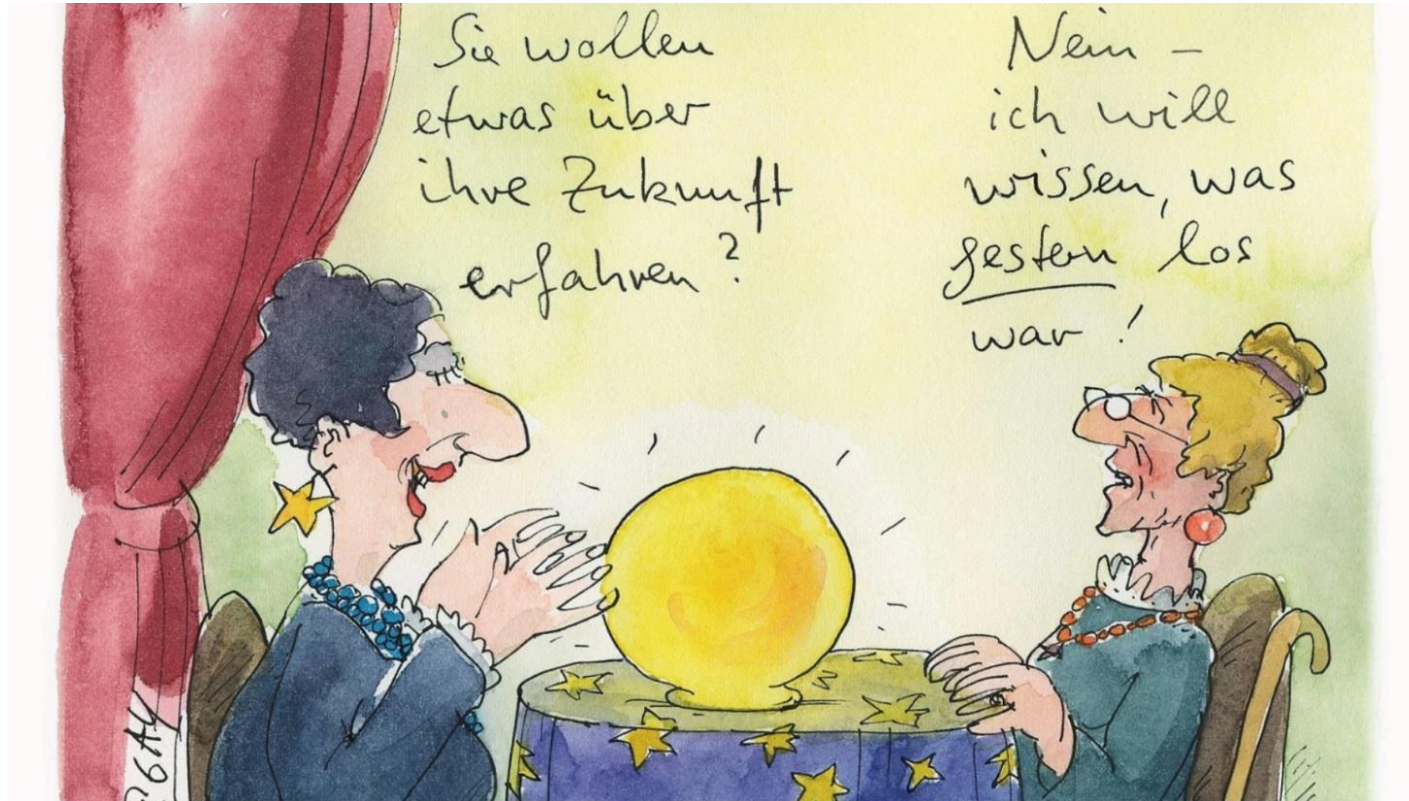 Sie wollen
etwas über
ihre Zukunft
erfahren?
Nein –
ich will
wissen, was
gestern los
war!